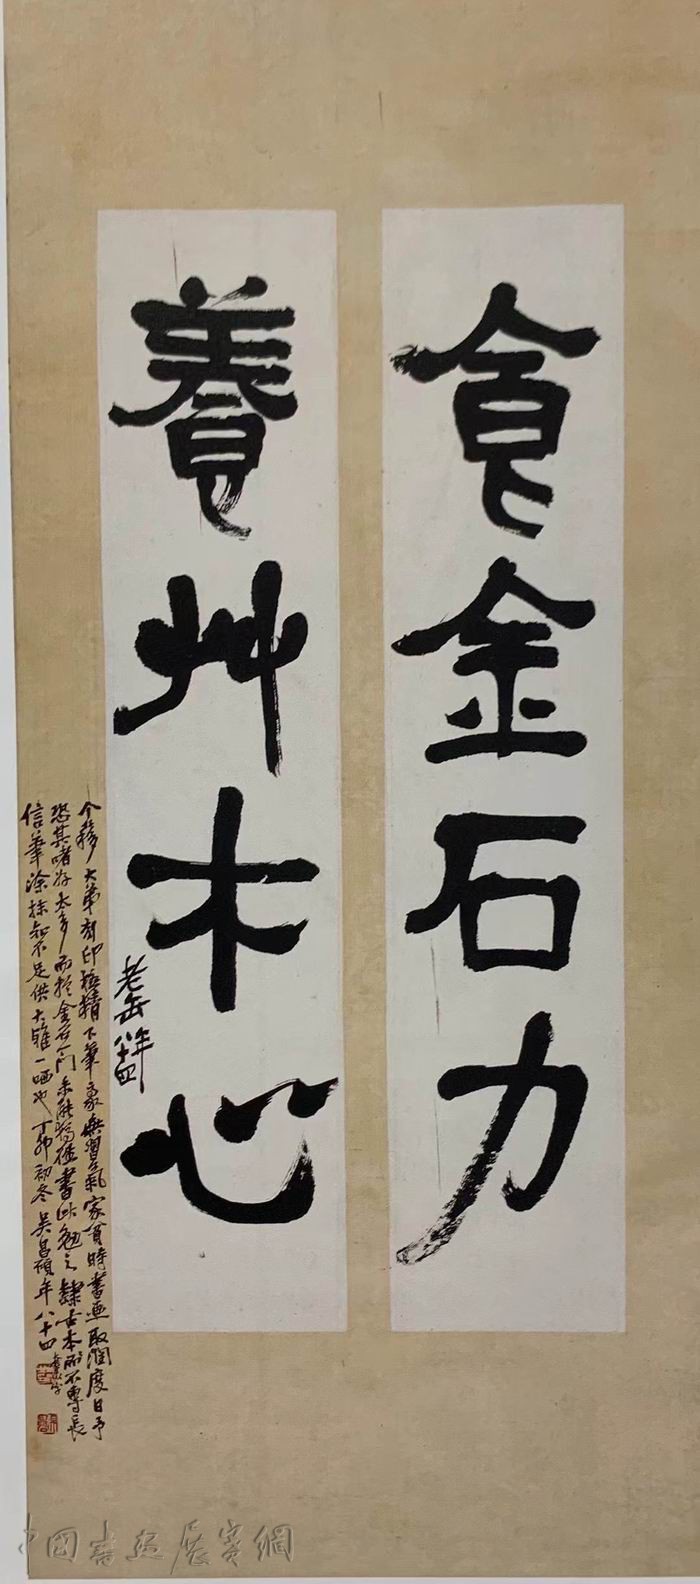 食金石力
養艸木心
老缶年八十四
个簃大弟刻印極精下筆豪無習氣家貧時書畫取潤度日予
恐其嗜好太多而於金石門未能為磕書此勉之隸古本所不專長
信筆塗抹知不足供大雅一哂也丁卯初冬吳昌碩年八十四
中國書畫展賽網